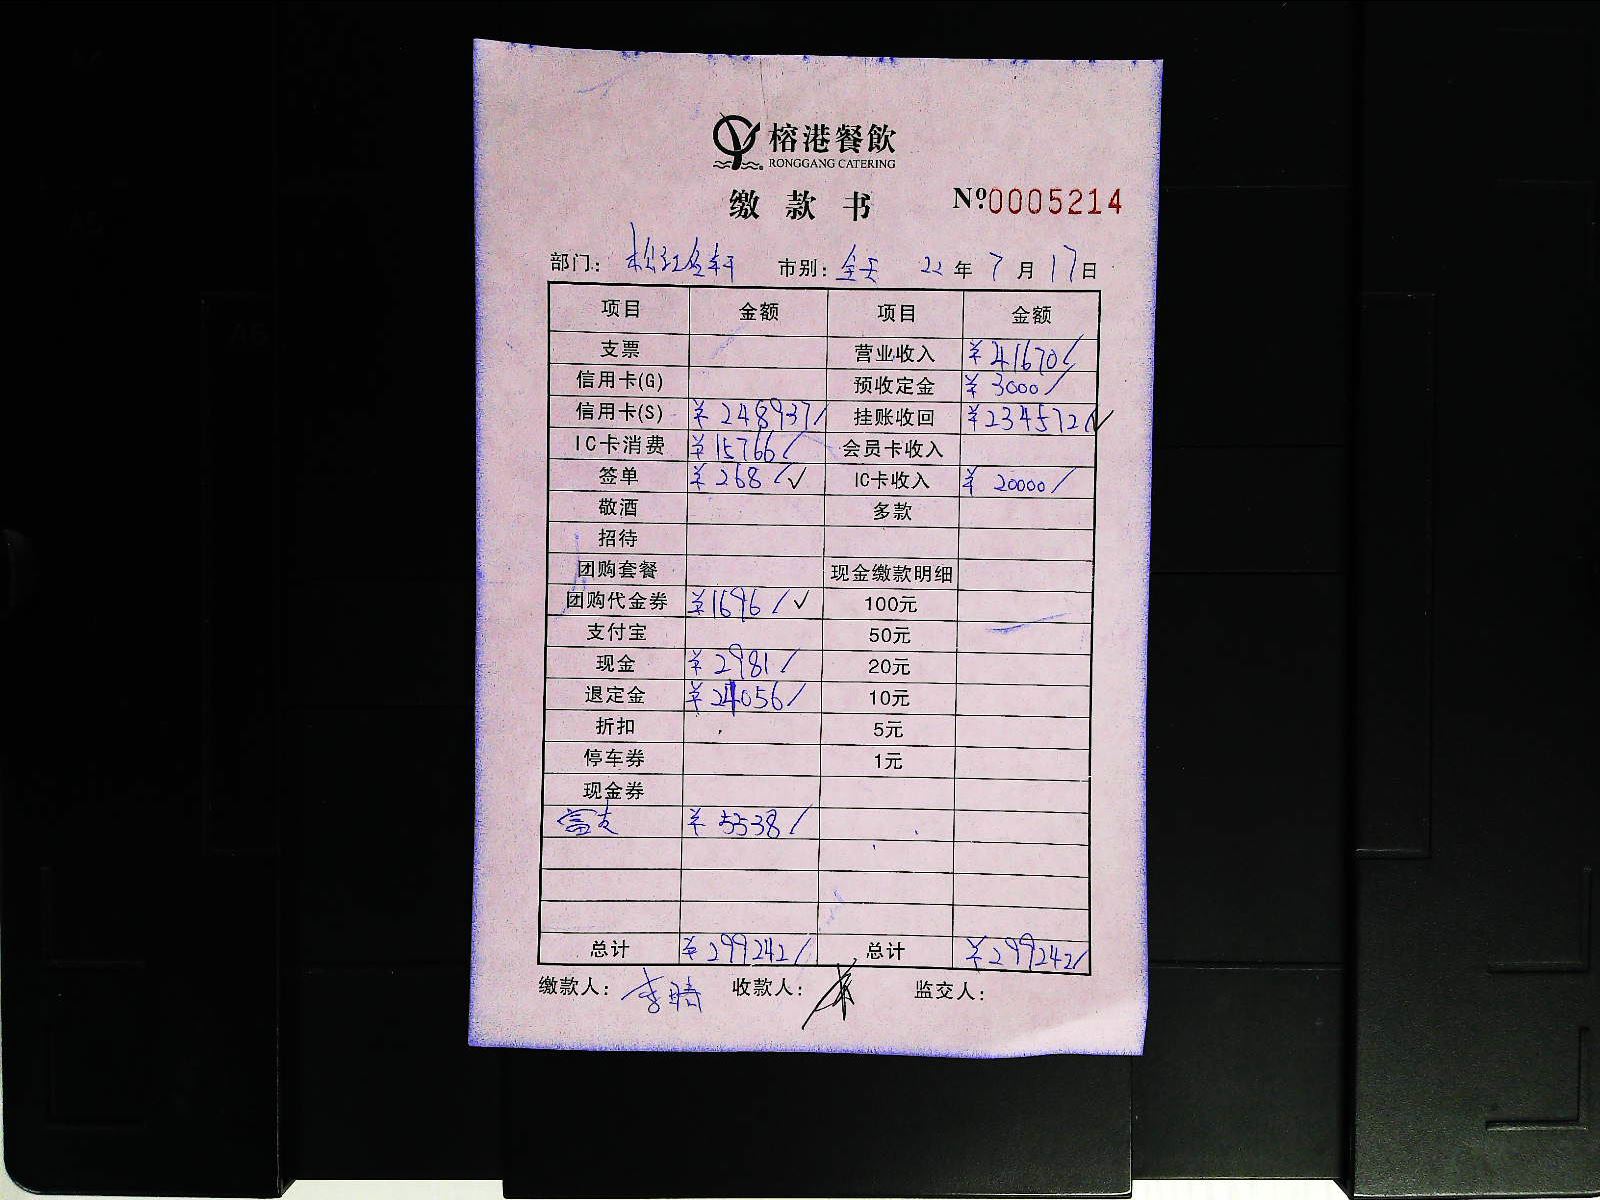 榕港餐飲
RONGGANG CATERING
缴 款 书 Nº:0005214
部门: 松江金轩 市别: 全天 22 年 7 月 17 日
项目 金额 项目 金额
支票 营业收入 ¥41670/
信用卡(G) 预收定金 ¥3000/
信用卡(S) ¥248937/ 挂账收回 ¥234572/✓
IC卡消费 ¥15766/ 会员卡收入
签单 ¥268/✓ IC卡收入 ¥20000/
敬酒 多款
招待
团购套餐 现金缴款明细
团购代金券 ¥1696/✓ 100元
支付宝 50元
现金 ¥2981/ 20元
退定金 ¥24056/ 10元
折扣 5元
停车券 1元
现金券
富友 ¥5538/
总计 ¥299242/ 总计 ¥299242/
缴款人: 李晴 收款人: 监交人: